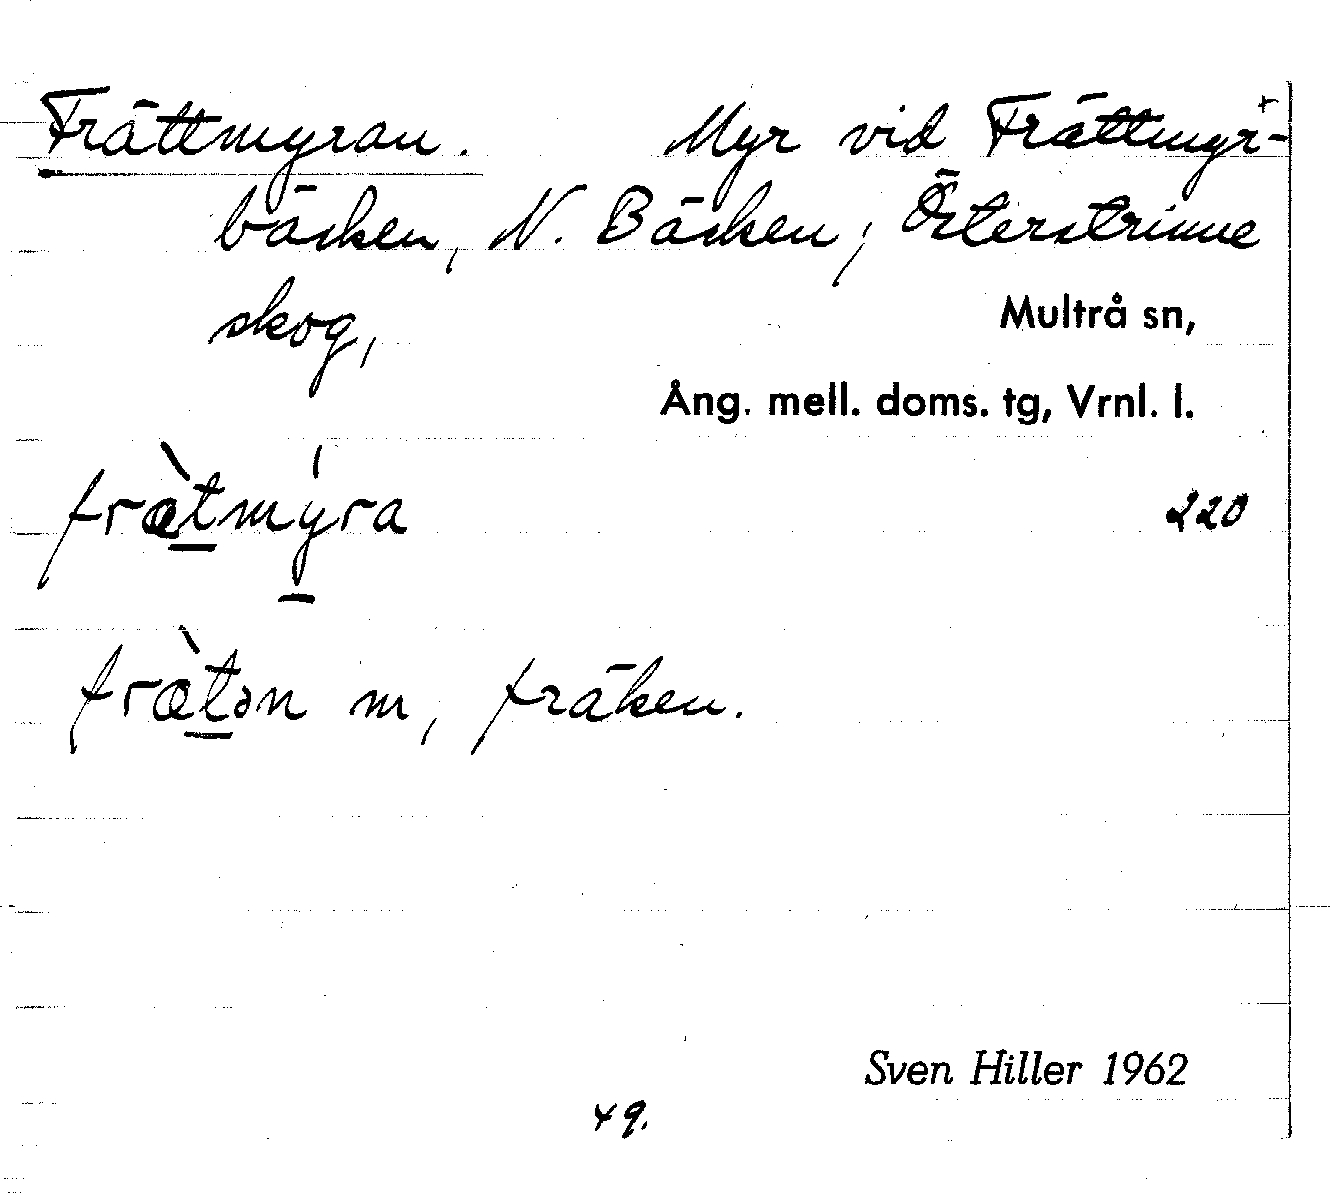 Frättmyran. Myr vid Frättmyr-
bäcken, N. Bäcken, Österstrinne
skog,
Multrå sn,
Ång. mell. doms. tg, Vrnl. l.
fræ̀tmýra 220
fræ̀tən m, fräken.
Sven Hiller 1962
49.